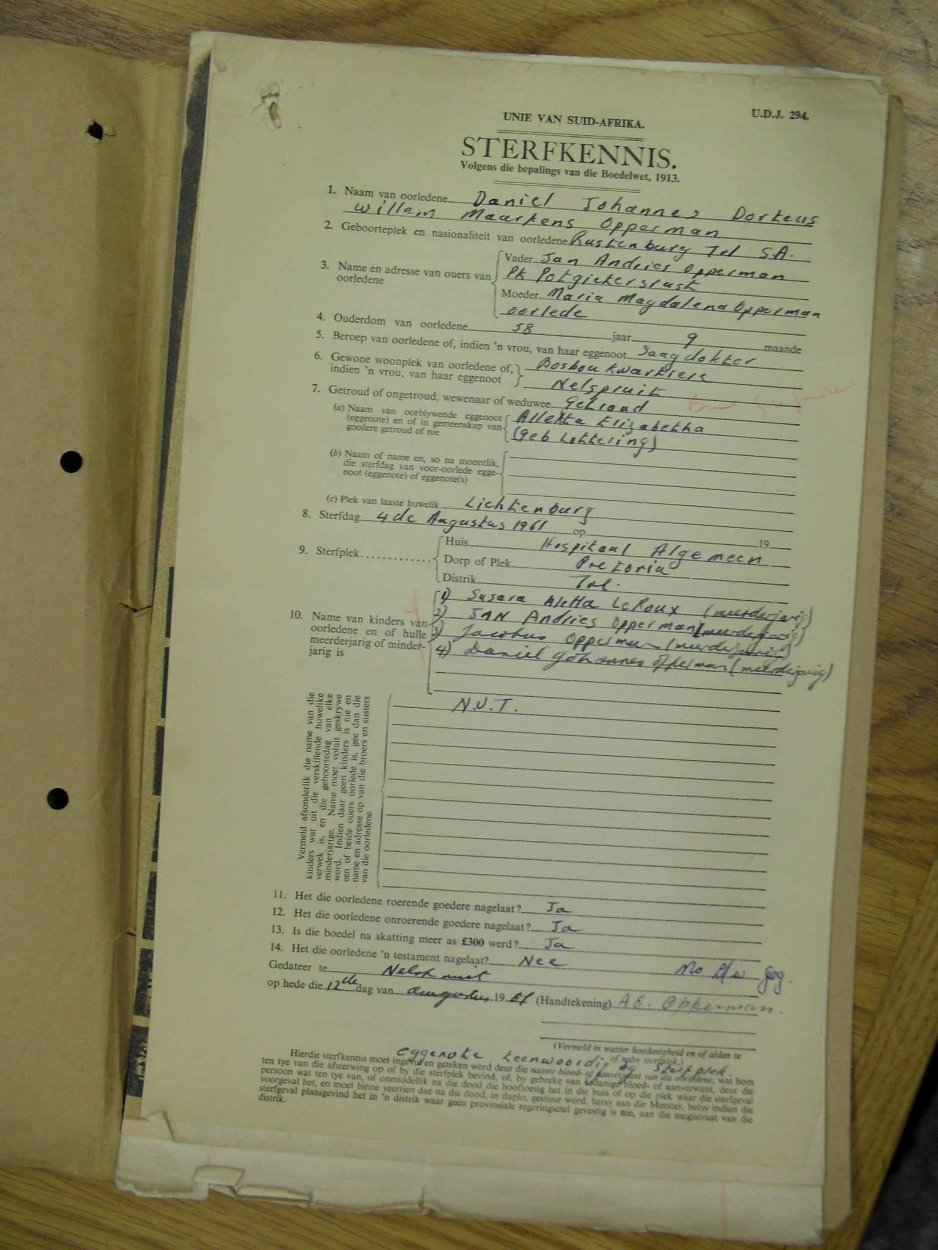 U.D.J. 294.
UNIE VAN SUID-AFRIKA.
STERFKENNIS.
Volgens die bepalings van die Boedelwet, 1913.
1. Naam van oorledene Daniel Johannes Dorteus
Willem Maartens Opperman
2. Geboorteplek en nasionaliteit van oorledene Rustenburg Tvl S.A.
3. Name en adresse van ouers van oorledene
Vader Jan Andries Opperman
PK Potgietersrust
Moeder Maria Magdalena Opperman
oorlede
4. Ouderdom van oorledene 58 jaar 9 maande
5. Beroep van oorledene of, indien 'n vrou, van haar eggenoot Saagdokter
6. Gewone woonplek van oorledene of, Bosbou Kwartiere
indien 'n vrou, van haar eggenoot Nelspruit
7. Getroud of ongetroud, wewenaar of weduwee Getroud
(a) Naam van oorblywende eggenoot Aletta Elizabetha
(eggenote) en of in gemeenskap van (Geb Lottering)
goedere getroud of nie
(b) Naam of name en, so na moontlik,
die sterfdag van voor-oorlede egge-
noot (eggenote) of eggenote(s)
(c) Plek van laaste huwelik Lichtenburg
8. Sterfdag 4de Augustus 1961 op 19
9. Sterfplek
Huis Hospitaal Algemeen
Dorp of Plek Pretoria
Distrik Tvl.
10. Name van kinders van
oorledene en of hulle
meerderjarig of minder-
jarig is
1) Susara Aletta LeRoux (meerderjarig)
2) JAN Andries Opperman (meerderjarig)
3) Jacobus Opperman (meerderjarig)
4) Daniel Johannes Opperman (meerderjarig)
Vermeld afsonderlik die name van die
kinders wat uit die verskillende huwelike
verwek is, en die geboortedag van elke
minderjarige. Name moet voluit geskrywe
word. Indien daar geen kinders is nie en
een of beide ouers oorlede is, gee dan die
name en adresse op van die broers en susters
van die oorledene.
N.V.T.
11. Het die oorledene roerende goedere nagelaat? Ja
12. Het die oorledene onroerende goedere nagelaat? Ja
13. Is die boedel na skatting meer as £300 werd? Ja
14. Het die oorledene 'n testament nagelaat? Nee
Gedateer te Nelspruit
op hede die 12de dag van Augustus 1961 (Handtekening) A.E. Opperman.
(Vermeld in watter hoedanigheid en of aldan te
of naby sterfplek.)
eggenote teenwoordig by sterfplek.
Hierdie sterfkennis moet ingevul en geteken word deur die naaste bloed- of aanverwant van die oorledene, wat hom
ten tye van die afsterwing op of by die sterfplek bevind, of, by gebreke van sodanige bloed- of aanverwant, deur die
persoon wat ten tye van, of onmiddellik na die dood die hooftoesig het in die huis of op die plek waar die sterfgeval
voorgeval het, en moet binne veertien dae na die dood, in duplo, gestuur word, hetsy aan die Meester, hetsy indien die
sterfgeval plaasgevind het in 'n distrik waar geen provinsiale regeringsetel gevestig is nie, aan die magistraat van die
distrik.